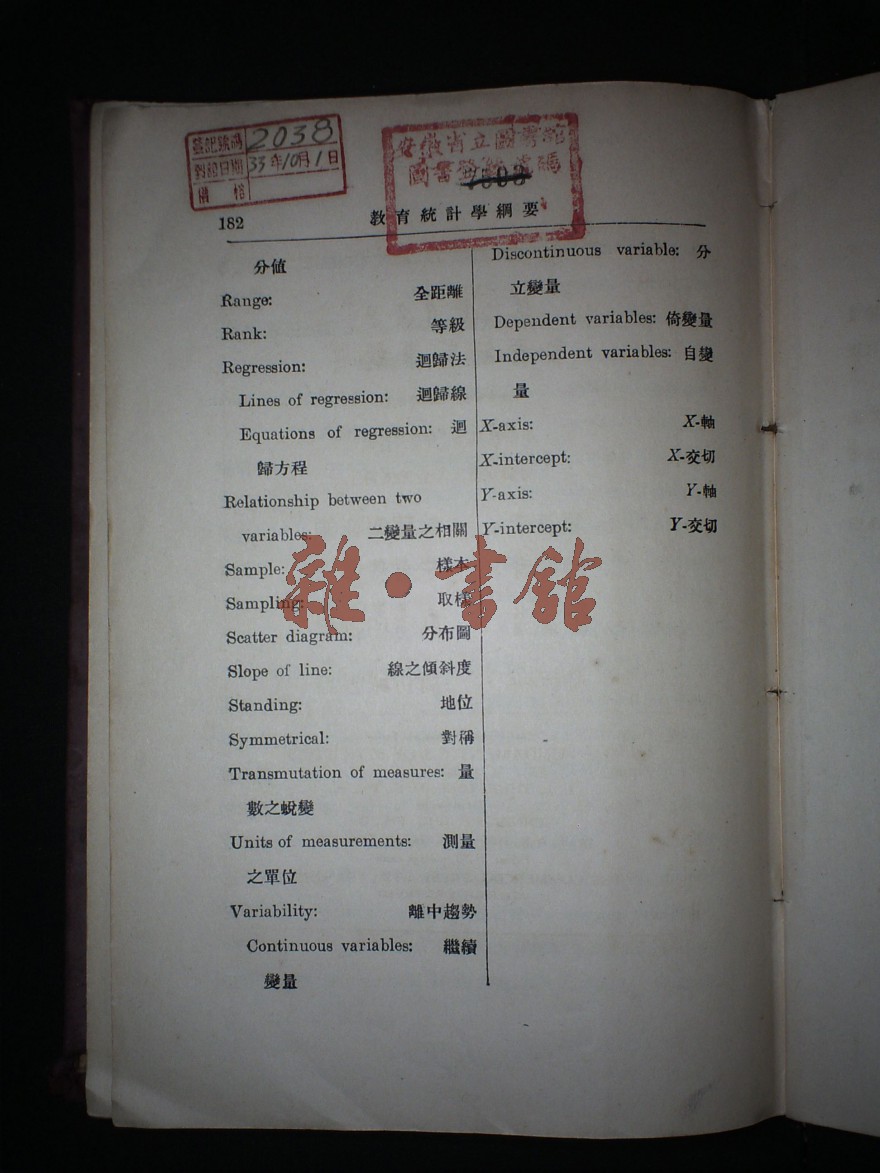 登記號碼 2038
登記日期 33年10月1日
價格
安徽省立圖書館
圖書登錄號碼
182
教育統計學綱要
分値
Range: 全距離
Rank: 等級
Regression: 迴歸法
Lines of regression: 迴歸線
Equations of regression: 迴
歸方程
Relationship between two
variables: 二變量之相關
Sample: 樣本
Sampling: 取樣
Scatter diagram: 分布圖
Slope of line: 線之傾斜度
Standing: 地位
Symmetrical: 對稱
Transmutation of measures: 量
數之蛻變
Units of measurements: 測量
之單位
Variability: 離中趨勢
Continuous variables: 繼續
變量
Discontinuous variable: 分
立變量
Dependent variables: 倚變量
Independent variables: 自變
量
X-axis: X-軸
X-intercept: X-交切
Y-axis: Y-軸
Y-intercept: Y-交切
雜·書館